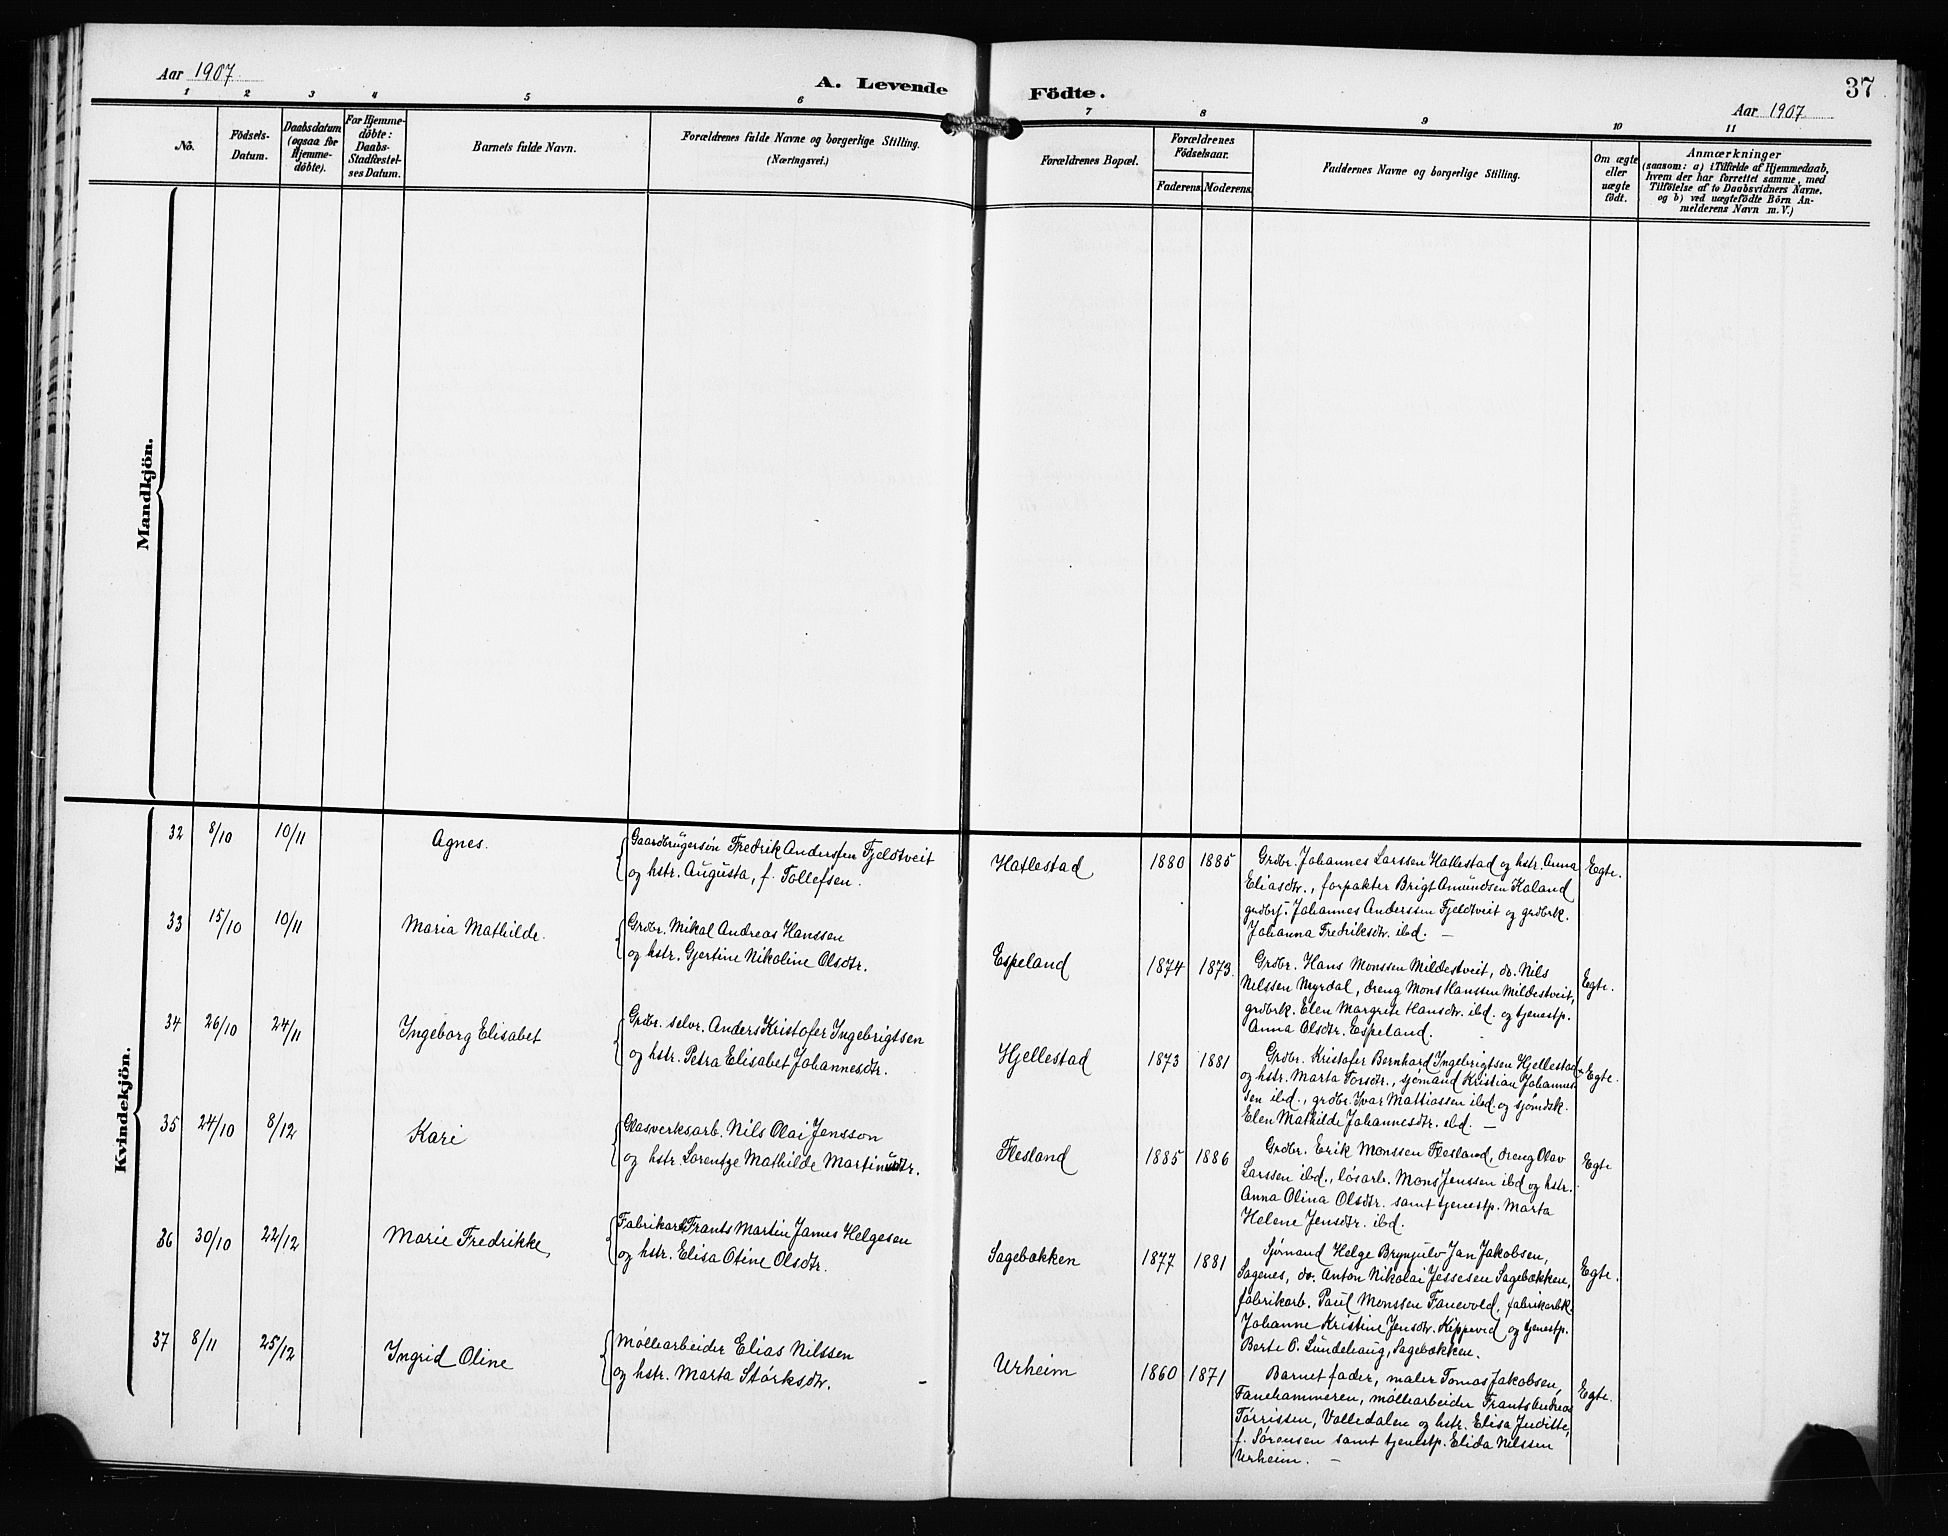 Aar 1907
A. Levende Födte.
37
Aar 1907
1 2 3 4 5 6 7 8 9 10 11
No.
Födsels-
Datum.
Daabsdatum
(ogsaa for
Hjemme-
döbte).
For Hjemme-
döbte:
Daabs-
Stadfæstel-
ses Datum.
Barnets fulde Navn.
Forældrenes fulde Navne og borgerlige Stilling.
(Næringsvei.)
Forældrenes Bopæl.
Forældrenes
Födselsaar.
Faderens. Moderens.
Faddernes Navne og borgerlige Stilling.
Om ægte
eller
uægte
födt.
Anmærkninger
(saasom: a) i Tilfælde af Hjemmedaab,
hvem der har forrettet samme, med
Tilföielse af to Daabsvidners Navne,
og b) ved uægtefödte Börn An-
melderens Navn m. V.)
Mandkjön.
Kvindekjön.
32 8/10 10/11 Agnes.
Gaardbrugersön Fredrik Anderssen Fjeldtveit
og hstr. Augusta, f. Tollefsen.
Hatlestad 1880 1885
Grdbr. Johannes Larssen Hatlestad og hstr. Anna
Eliasdtr., forpakter Brigt Amundsen Kaland
grdbrf. Johannes Anderssen Fjeldtveit og grdbrk.
Johanna Fredriksdtr. ibd. —
Egte.
33 15/10 10/11 Maria Mathilde.
Grdbr. Mikal Andreas Hanssen
og hstr. Gjertine Nikoline Olsdtr.
Espeland 1874 1873.
Grdbr. Hans Monssen Mildestveit, do. Nils
Nilssen Myrdal, dreng Mons Hanssen Mildestveit,
grdbrk. Elen Margrete Hansdtr. ibd. og tjenestp.
Anna Olsdtr. Espeland.
Egte.
34 26/10 24/11 Ingeborg Elisabet
Grdbr. selvr. Anders Kristofer Ingebrigtsen
og hstr. Petra Elisabet Johannesdtr.
Hjellestad 1873 1881
Grdbr. Kristofer Bernhard Ingebrigtsen Hjellestad
og hstr. Marta Torsdtr., sjømand Kristian Johannes-
sen ibd., grdbr. Ivar Mattiassen ibd. og sjømdsk.
Elen Mathilde Johannesdtr. ibd. —
Egte.
35 24/10 8/12 Kari
Glasverksarb. Nils Olai Jensson
og hstr. Lorentze Mathilde Martinusdtr.
Flesland 1885 1886
Grdbr. Erik Monssen Flesland, dreng Olav
Larssen ibd., løsarb. Mons Jenssen ibd og hstr.
Anna Olina Olsdtr. samt tjenestp. Marta
Helene Jensdtr. ibd.
Egte
36 30/10 22/12 Marie Fredrikke,
Fabrikarb. Frants Martin James Helgesen
og hstr. Elisa Otine Olsdtr.
Sagebækken 1877 1881
Sjømand Helge Brynjulv Jan Jakobsen,
Sagenes, do. Anton Nikolai Jessesen Sagebækken,
fabrikarb. Paul Monssen Fanevold, fabrikarbk.
Johanne Kristine Jensdtr. Kippeved og tjenestp.
Berte O. Lundehaug, Sagebækken.
Egte.
37 8/11 25/12 Ingrid Oline
Møllearbeider Elias Nilssen
og hstr. Marta Størksdtr. —
Urheim 1860 1871
Barnet fader, maler Tomas Jakobsen,
Fanehammeren, møllearbeider Frants Andreas
Tørrissen, Valledalen og hstr. Elisa Juditte,
f. Sørensen samt tjenestp. Elida Nilssen
Urheim. —
Egte.